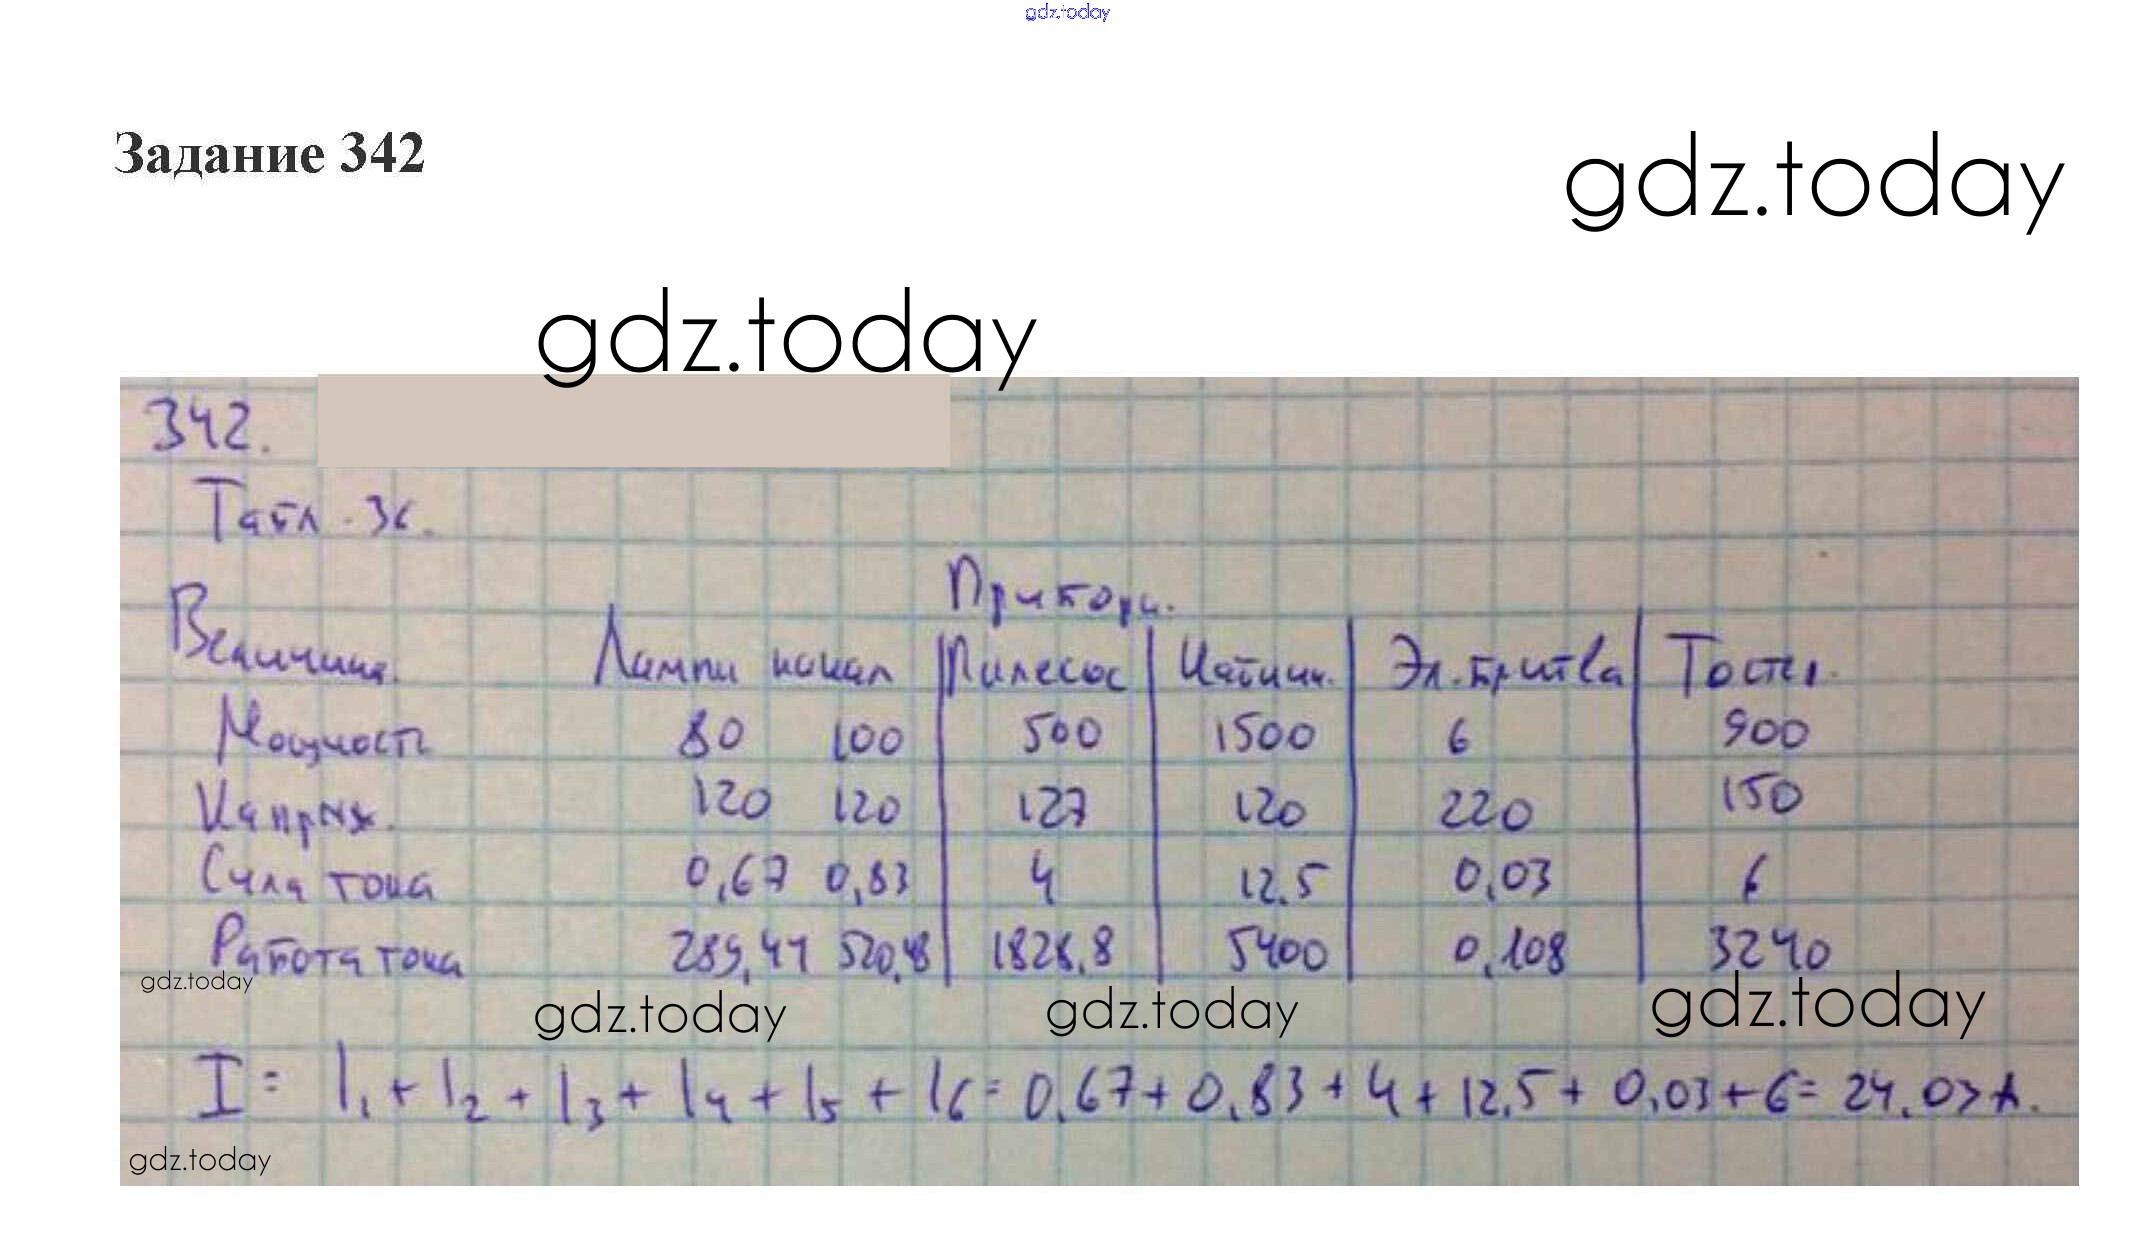 gdz.today
Задание 342
gdz.today
gdz.today
342.
Табл. 36.
Приборы.
Величина. Лампы накал Пылесос Кабин. Эл. бритва Тост.
Мощность 80 100 500 1500 6 900
Напряж. 120 120 127 120 220 150
Сила тока 0,67 0,83 4 12.5 0,03 6
Работа тока 289,44 520,48 1828,8 5400 0,108 3240
gdz.today gdz.today gdz.today gdz.today
I = I₁ + I₂ + I₃ + I₄ + I₅ + I₆ = 0,67 + 0,83 + 4 + 12,5 + 0,03 + 6 = 24,03 А.
gdz.today